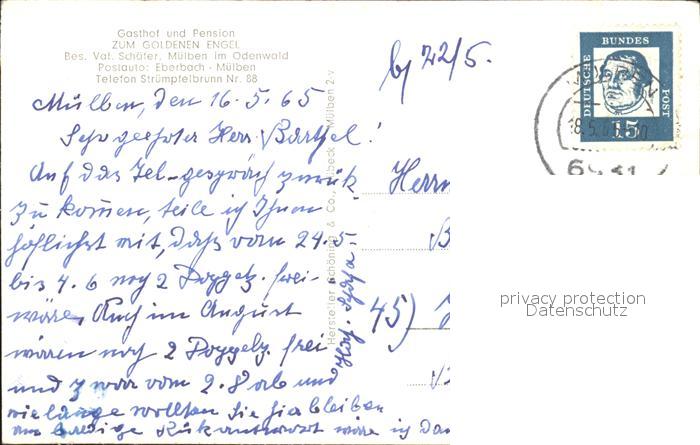 Gasthof und Pension
ZUM GOLDENEN ENGEL
Bes. Val. Schäfer, Mülben im Odenwald
Postauto: Eberbach - Mülben
Telefon Strümpfelbrunn Nr. 88
bj 22/5.
DEUTSCHE BUNDES POST
15
18.5.65
6931
Mülben, den 16.5.65
Sehr geehrter Herr Barthel!
Auf das Tel-gespräch zurück
zu kommen, teile ich Ihnen
höflichst mit, daß vom 24.5-
bis 4.6 noch 2 Doppelz. frei-
wäre, Auch im August
wären noch 2 Doppelz. frei
und zwar vom 2.8 ab und
wielange wollten Sie hierbleiben
um baldige Rückantwort wäre ich Dan
Hersteller Schöning & Co., Lübeck Mülben 2 v
Herrn
B
45)
privacy protection
Datenschutz